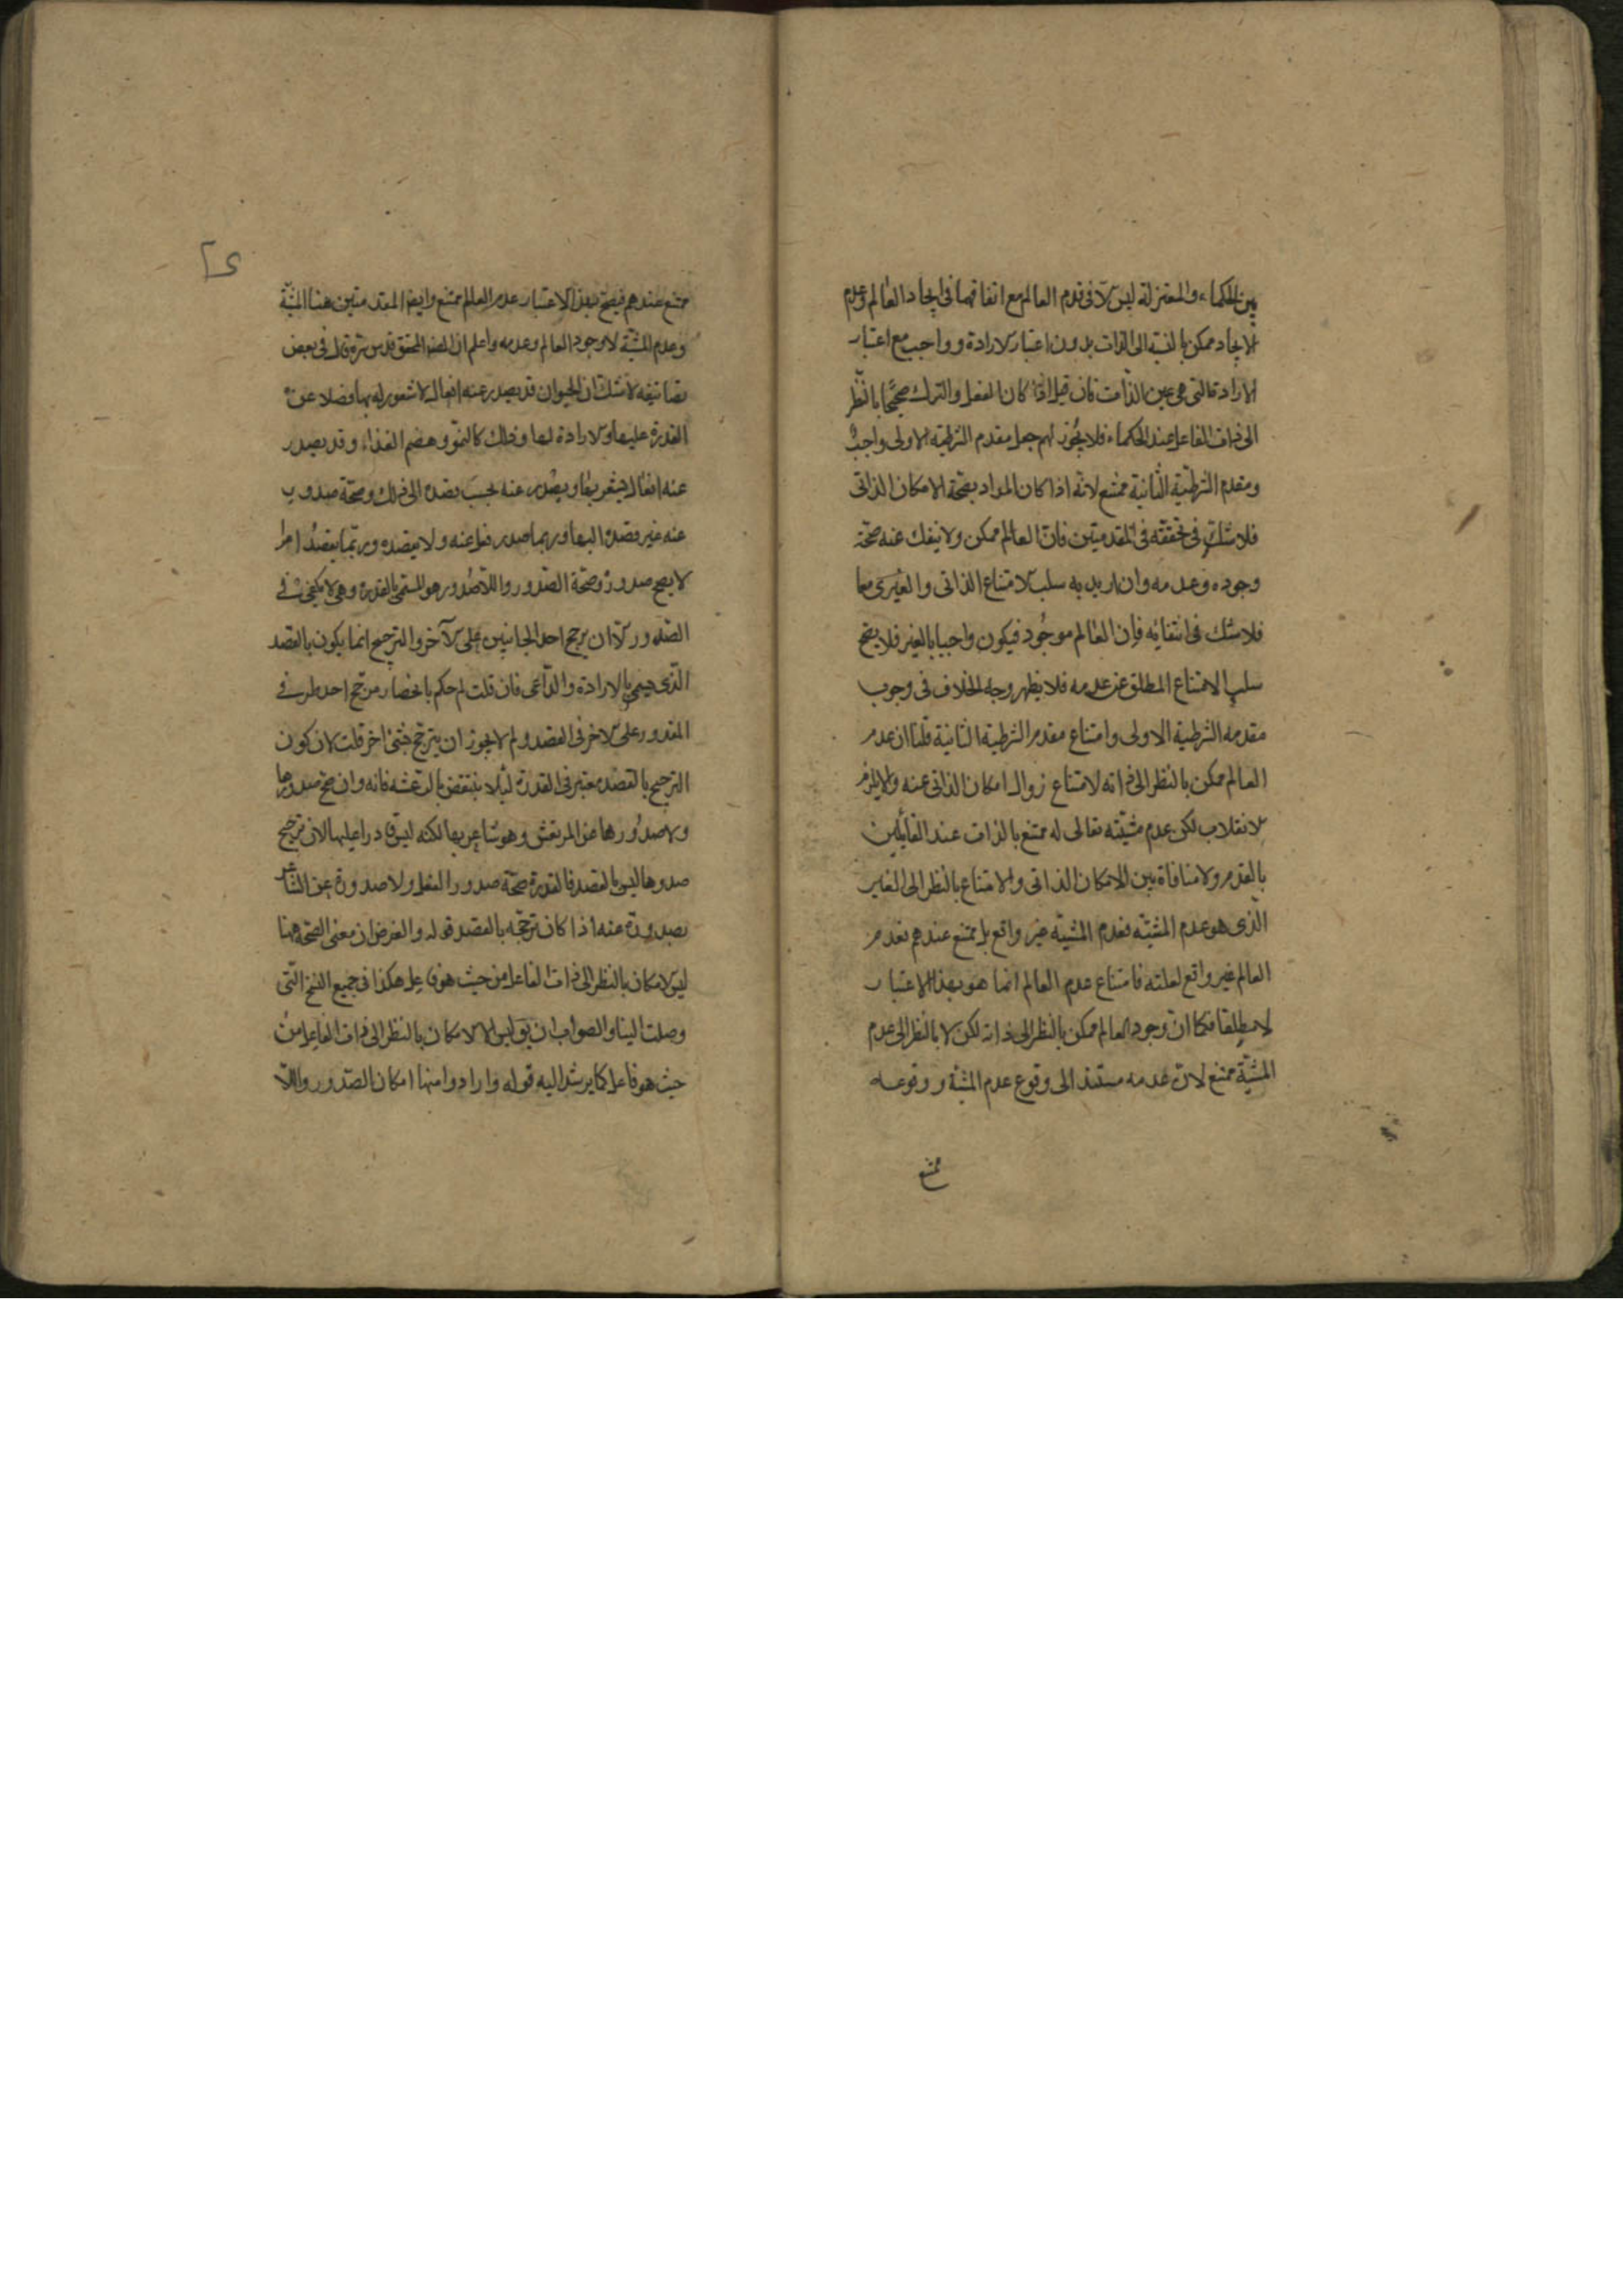 بين الحكماء والمعتزلة ليس الا فى قدم العالم مع اتفاقهما فى ايجاد العالم وعدم
الايجاد ممكن بالنسبة الى الذات بدون اعتبار الارادة وواجب مع اعتبار
الارادة التى هى عين الذات فان قيل اذا كان الفعل والترك صحيحا بالنظر
الى ذات الفاعل عند الحكماء فلا يجوز لهم جعل مقدم الشرطية الاولى واجب
ومقدم الشرطية الثانية ممتنع لانه اذا كان المراد بصحة الامكان الذاتى
فلا شك فى تحققه فى المقدمتين فان العالم ممكن ولا ينفك عنه صحة
وجوده وعدمه وان اريد به سلب الامتناع الذاتى والغيرى معا
فلا شك فى انتفائه فان العالم موجود فيكون واجبا بالغير فلا يصح
سلب الامتناع المطلق عن عدمه فلا يظهر وجه الخلاف فى وجوب
مقدمه الشرطية الاولى وامتناع مقدم الشرطية الثانية قلنا ان عدم
العالم ممكن بالنظر الى ذاته لامتناع زوال امكان الذاتى عنه والا يلزم
الانقلاب لكن عدم مشيته تعالى له ممتنع بالذات عند القائلين
بالقدم ولا منافاة بين الامكان الذاتى والامتناع بالنظر الى الغير
الذى هو عدم المشية فعدم المشية غير واقع بل ممتنع عندهم فعدم
العالم غير واقع لعلته فامتناع عدم العالم انما هو بهذا الاعتبار
لا مطلقا فكما ان وجود العالم ممكن بالنظر الى ذاته لكن لا بالنظر الى عدم
المشية ممتنع لان عدمه مستند الى وقوع عدم المشية ووقوعه
ممتنع
ممتنع عندهم فيصح بهذا الاعتبار عدم العالم ممتنع وايضا المقدمتين هنا المشية
وعدم المشية لا وجود العالم وعدمه واعلم ان المحقق قدس سره قال فى بعض
تصانيفه لا شك ان الحيوان قد يصدر عنه افعال لا شعور له بها فضلا عن
القدرة عليها والارادة لها وذلك كالنمو وهضم الغذاء وقد يصدر
عنه افعال يشعر بها ويصدر عنه بحسب قصده الى ذلك وصحة صدور
عنه غير قصده اليها وربما صدر فعل عنه ولا يقصده وربما يقصد امرا
لا يصح صدوره وصحة الصدور واللاصدور هو المسمى بالقدرة وهى لا يكفى فى
الصدور الا ان يرجح احد الجانبين على الآخر والترجيح انما يكون بالقصد
الذى يسمى بالارادة والداعى فان قلت لم حكم بانحصار مرجح احد طرفى
المقدور على الاخر فى القصد ولم لا يجوز ان يترجح بشئ اخر قلت لان كون
الترجيح بالقصد معتبر فى القدرة لئلا ينتقض بالرعشة فانه وان صح صدورها
ولا صدورها عن المرتعش وهو شاعر بها لكنه ليس قادرا عليها لان ترجيح
صدورها ليس بالقصد فالقدرة صحة صدور الفعل ولا صدوره عن الشاعر
بصدوره عنه اذا كان ترجحه بالقصد قوله والغرض ان معنى الصحة ههنا
ليس الامكان بالنظر الى ذات الفاعل من حيث هو فاعل هكذا فى جميع النسخ التى
وصلت الينا والصواب ان يقال ليس الا الامكان بالنظر الى ذات الفاعل من
حيث هو فاعل كما يرشد اليه قوله وارادوا منها امكان الصدور واللا